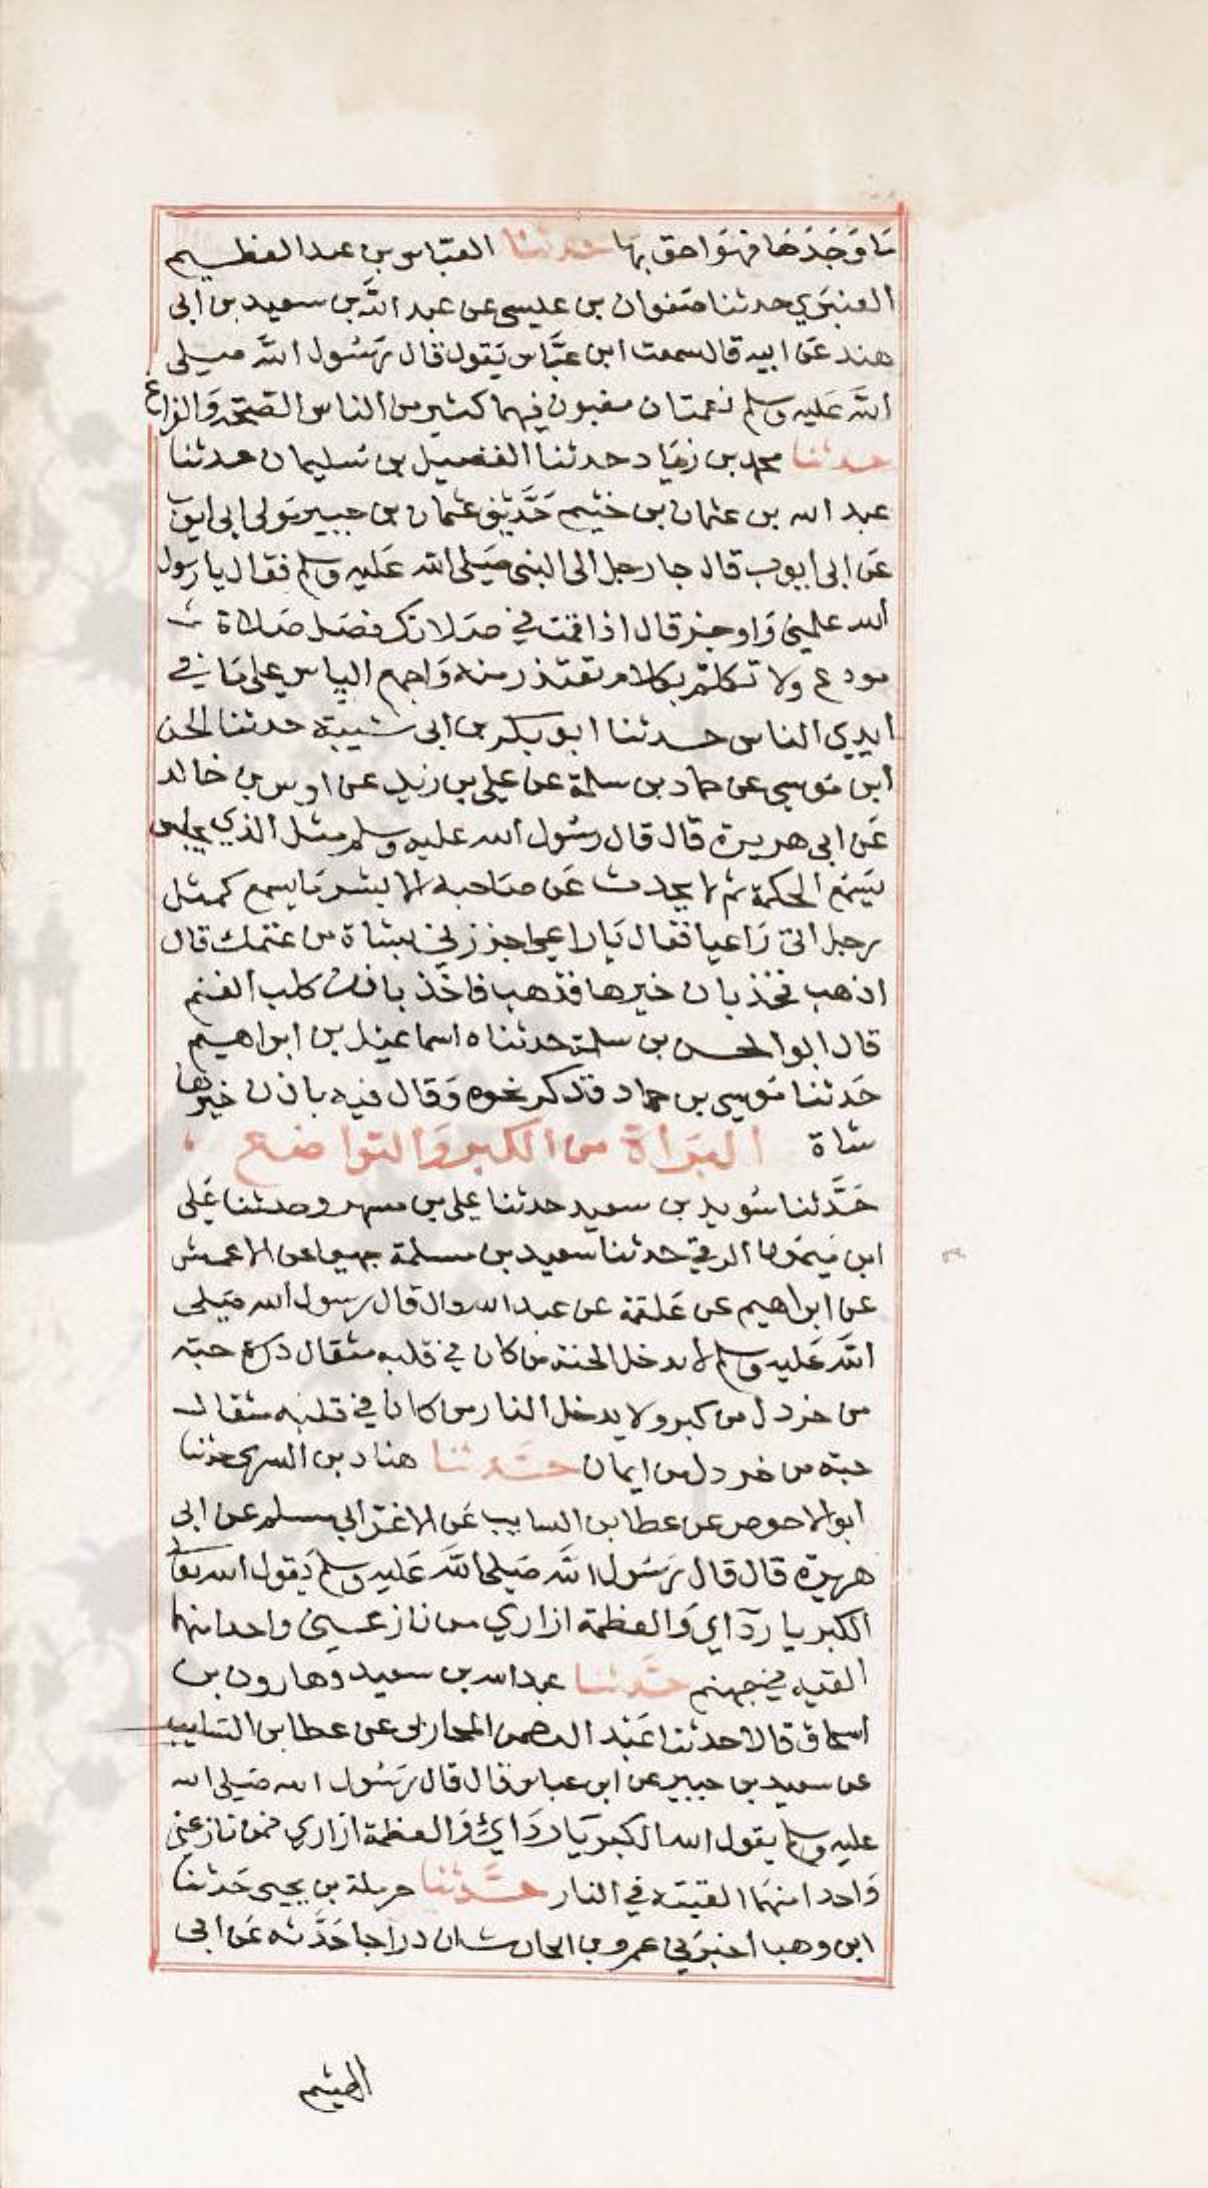 ما وجدها فهو احق بها حدثنا العباس بن عبد العظيم
العنبري حدثنا صفوان بن عيسى عن عبد الله بن سعيد بن ابى
هند عن ابيه قال سمعت ابن عباس يقول قال رسول الله صلى
الله عليه وسلم نعمتان مغبون فيهما كثير من الناس الصحة والفراغ
حدثنا محمد بن زياد حدثنا الفضيل بن سليمان حدثنا
عبد الله بن عثمان بن خثيم حدثني عثمان بن جبير مولى ابى ايوب
عن ابى ايوب قال جا رجل الى النبى صلى الله عليه وسلم فقال يا رسول
الله علمني واوجز قال اذا قمت في صلاتك فصل صلاة
مودع ولا تكلم بكلام تعتذر منه واجمع الياس على ما في
ايدي الناس حدثنا ابو بكر بن ابى شيبة حدثنا الحسن
ابن موسى عن حماد بن سلمة عن علي بن زيد عن اوس بن خالد
عن ابى هريرة قال قال رسول الله عليه وسلم مثل الذي يجلس
يسمع الحكمة ثم لا يحدث عن صاحبه الا بشر ما يسمع كمثل
رجل اتى راعيا فقال يا راعي اجزرني بشاة من غنمك قال
اذهب فخذ باذن خيرها فذهب فاخذ باذن كلب الغنم
قال ابو الحسن بن سلمة حدثناه اسماعيل بن ابراهيم
حدثنا موسى بن حماد فذكر نحوه وقال فيه باذن خيرها
شاة البراة من الكبر والتواضع
حدثنا سويد بن سعيد حدثنا علي بن مسهر وحدثنا على
ابن ميمون الرقي حدثنا سعيد بن مسلمة جميعا عن الاعمش
عن ابراهيم عن علقمة عن عبد الله قال قال رسول الله صلى
الله عليه وسلم لا يدخل الجنة من كان في قلبه مثقال ذرة حبة
من خردل من كبر ولا يدخل النار من كان في قلبه مثقال
حبة من خردل من ايمان حدثنا هناد بن السري حدثنا
ابو الاحوص عن عطا بن السايب عن الاغر ابي مسلم عن ابى
هريرة قال قال رسول الله صلى الله عليه وسلم يقول الله تعا
الكبريا ردآي والعظمة ازاري من نازعني واحدا منهما
القيه في جهنم حدثنا عبد الله بن سعيد وهارون بن
اسحاق قالا حدثنا عبد الرحمن المحاربى عن عطا بن السايب
عن سعيد بن جبير عن ابن عباس قال قال رسول الله صلى الله
عليه وسلم يقول الله الكبريا رداي والعظمة ازاري فمن نازعني
واحدا منهما القيته في النار حدثنا حرملة بن يحيى حدثنا
ابن وهب اخبرني عمرو بن الحارث ان دراجا حدثه عن ابى
الهيثم